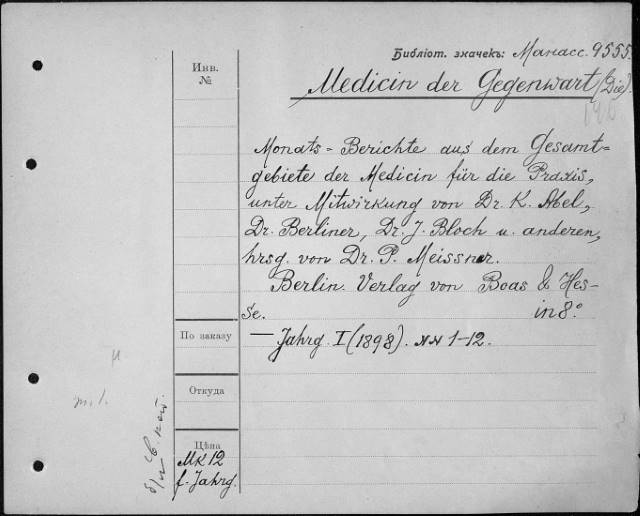 Библіот. значекъ: Манасс. 9555.
Инв.
№
Medicin der Gegenwart (Die).
Monats-Berichte aus dem Gesamt-
gebiete der Medicin für die Praxis,
unter Mitwirkung von Dr. K. Abel,
Dr. Berliner, Dr. J. Bloch u. anderen,
hrsg. von Dr. P. Meissner.
Berlin. Verlag von Boas & Hes-
se. in 8°.
По заказу
— Jahrg. I (1898). NN 1-12.
Откуда
Цѣна
Mk 12
f. Jahrg.
m. 1.